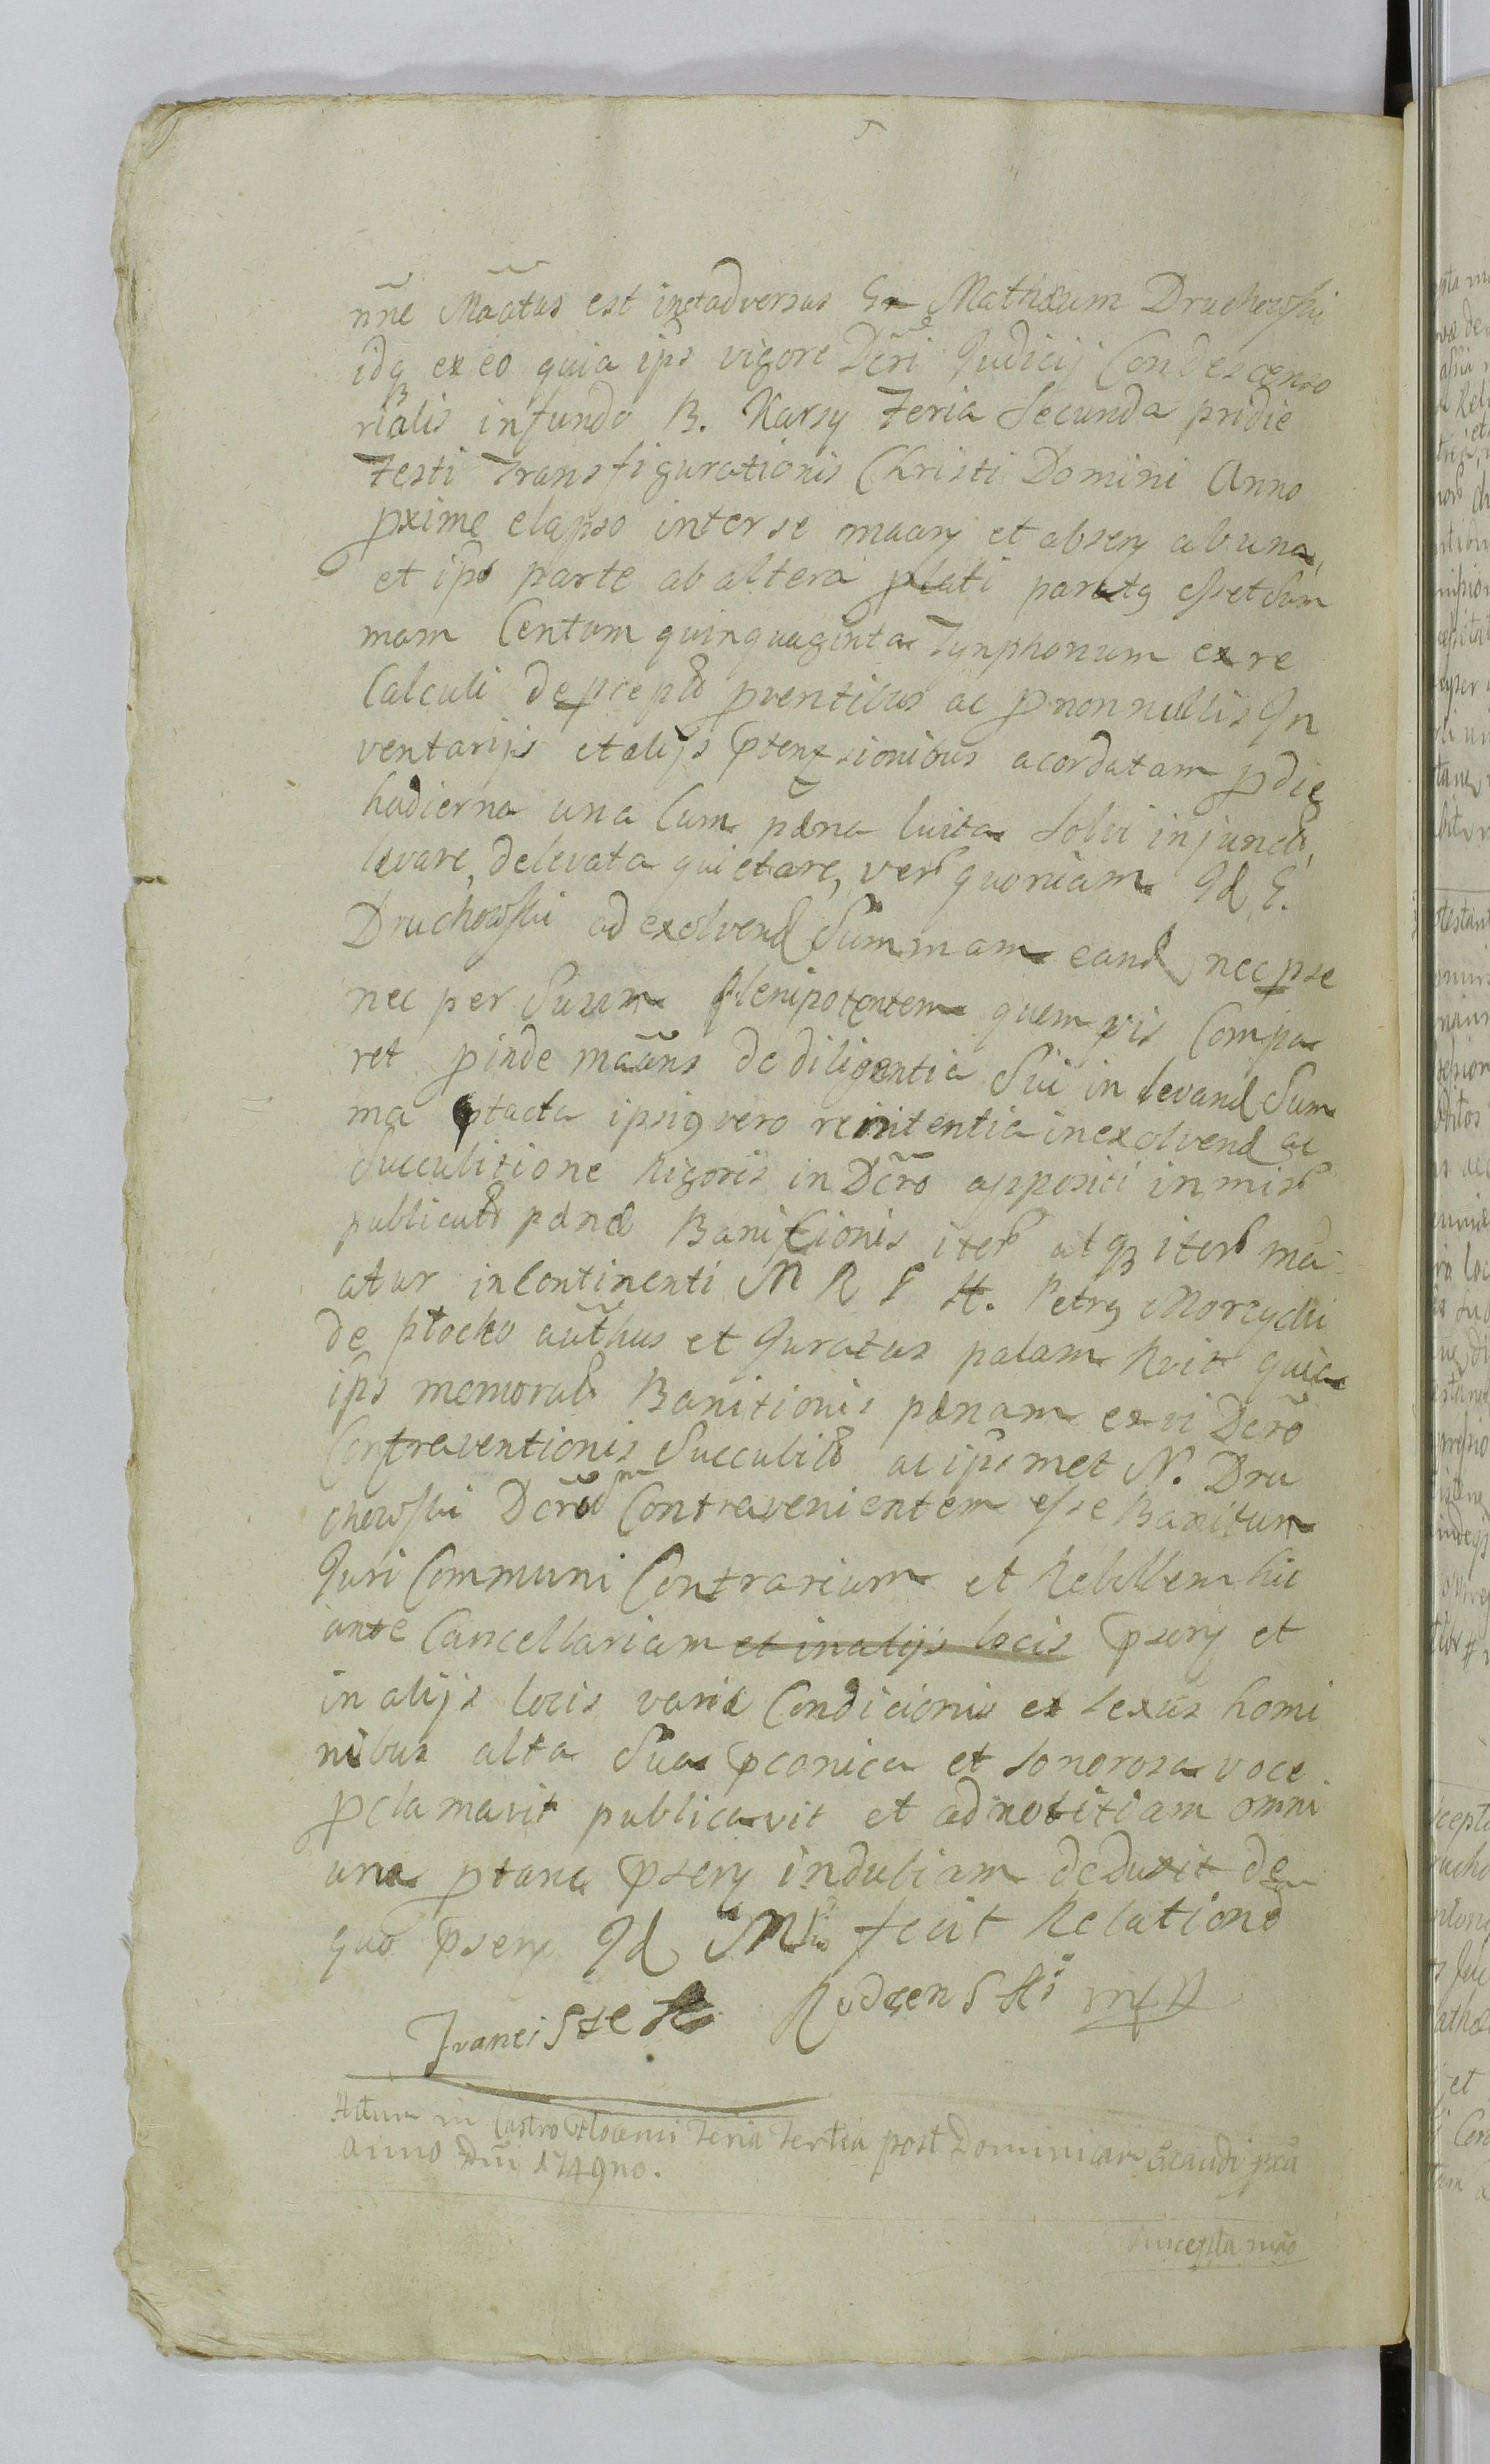 nñe Mãatus est in et adversus Gr Mathæum Druchowski
idq ex eo quia ips vigore Dcri Judicij Condescenso
rialis in fundo B. Karsy Feria Secunda pridie
Festi Transfigurationis Christi Domini Anno
pxime elapso inter se et ab una
et ips parte ab altera plati paratq esset Sum
mam Centum quinquaginta Tynphonum ex re
Calculi de pventibus ac p nonnullis In
ventarijs et alijs ptensionibus acordatam p die
hodierna una Cum pæna luita Solvi injunct
levare, delevata quietare, quoniam Id G.
Druchowski ad exolvend Summam eand nec pse
nec per Suum Plenipotentem quem vis Compa
ret pinde mãns de diligentia Sui in levand Sum
ma ptacta ipsiq vero renitentia in exolvend ac
Succubitione Rigoris in Dcro appositi
pænæ Banitionis iter atq iter mã
atur in Continenti M R G H. Petrq Morzycki
de Płocko aũthus et Juratus palam Rvit quia
ips memorat Banitionis pænam ex vi Dcro
Contraventionis Succubit ac ipsmet N. Dru
chowski Dcro Contravenientem esse Banitum
Juri Communi Contrarium et Rebellem hic
ante Cancellariam et in alijs locis psen et
in alijs locis variæ Condicionis et sexus homi
nibus alta Sua pconica et Sonorosa voce
pclamavit publicavit et ad notitiam omni
una ptane psen indubiam deduxit de
quo psen Id Mtr fecit Relatione
Franciszek Rudzenski mp
Actum in Castro Plocensi Feria Tertia post Dominicam Exaudi pxa
anno Dñi 1749no.
Suscepta